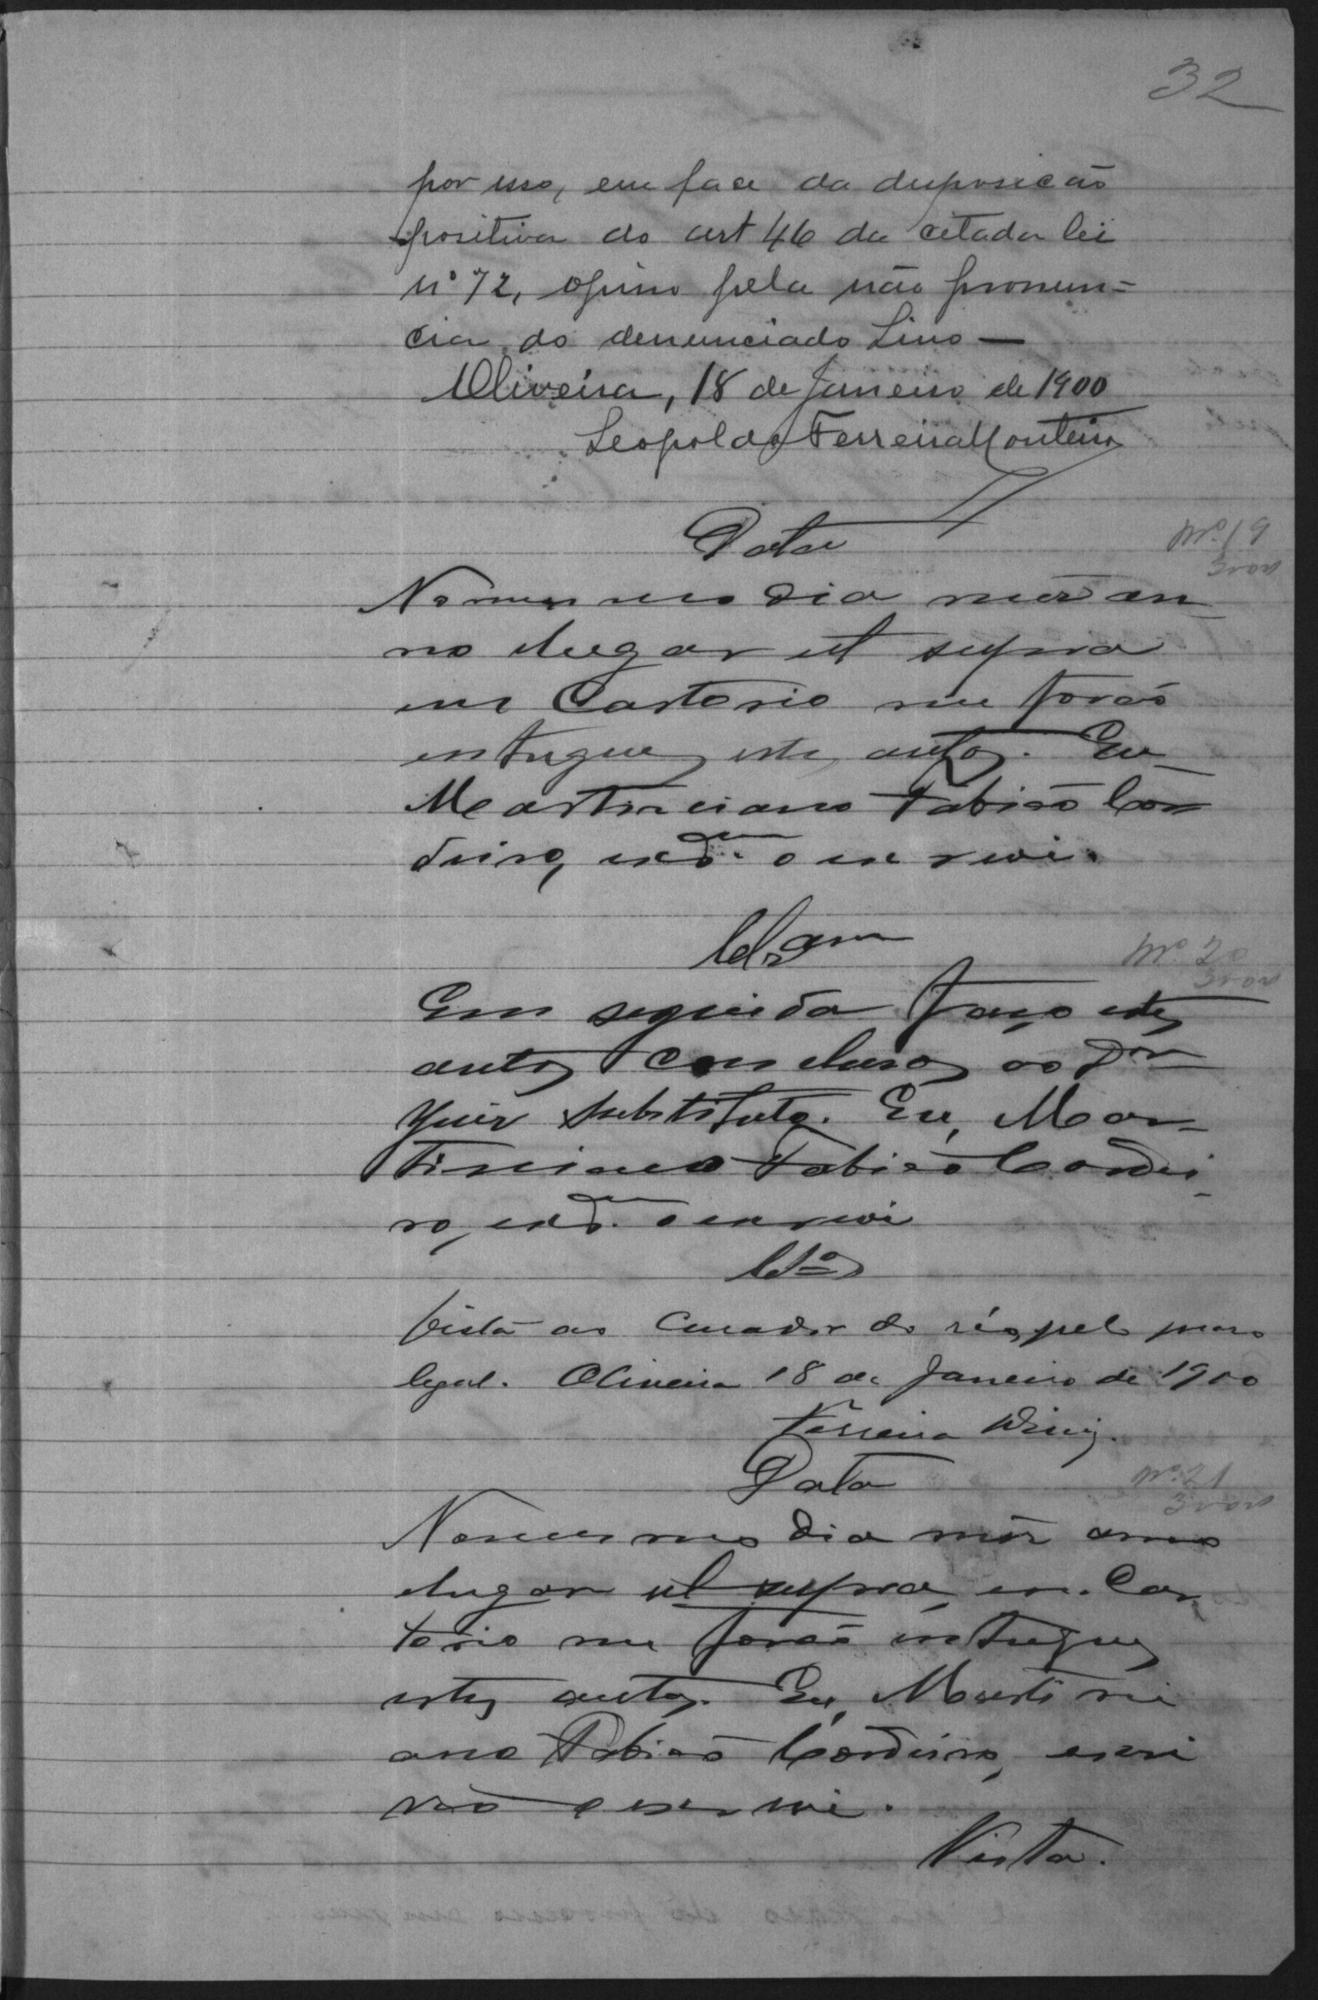 32
por isso, em face da disposição
positiva do art 46 da citada lei
nº 72, opino pela não pronun=
cia do denunciado Lino —
Oliveira, 18 de Janeiro de 1900
Leopoldo Ferreira Monteiro
Data
Nº 19
No mesmo dia mez an-
no e lugar ut supra
em Cartorio me forão
entregues estes autos. Eu
Martiniano Fabião Cor
deiro, escr.am o escrevi.
Clsam
Nº 20
Em seguida faço estes
autos conclusos ao Dr
Juiz Substituto. Eu, Mar-
tiniano Fabião Cordei-
ro, escr.am o escrevi
Clos
Vista ao Curador do réo, pelo praso
legal. Oliveira 18 de Janeiro de 1900
Ferreira Diniz.
Data
Nº 21
No mesmo dia mez anno
e lugar ut supra, em Car
torio me forão entregues
estes autos. Eu, Martini
ano Fabião Cordeiro, escri
vão o escrevi.
Vista.